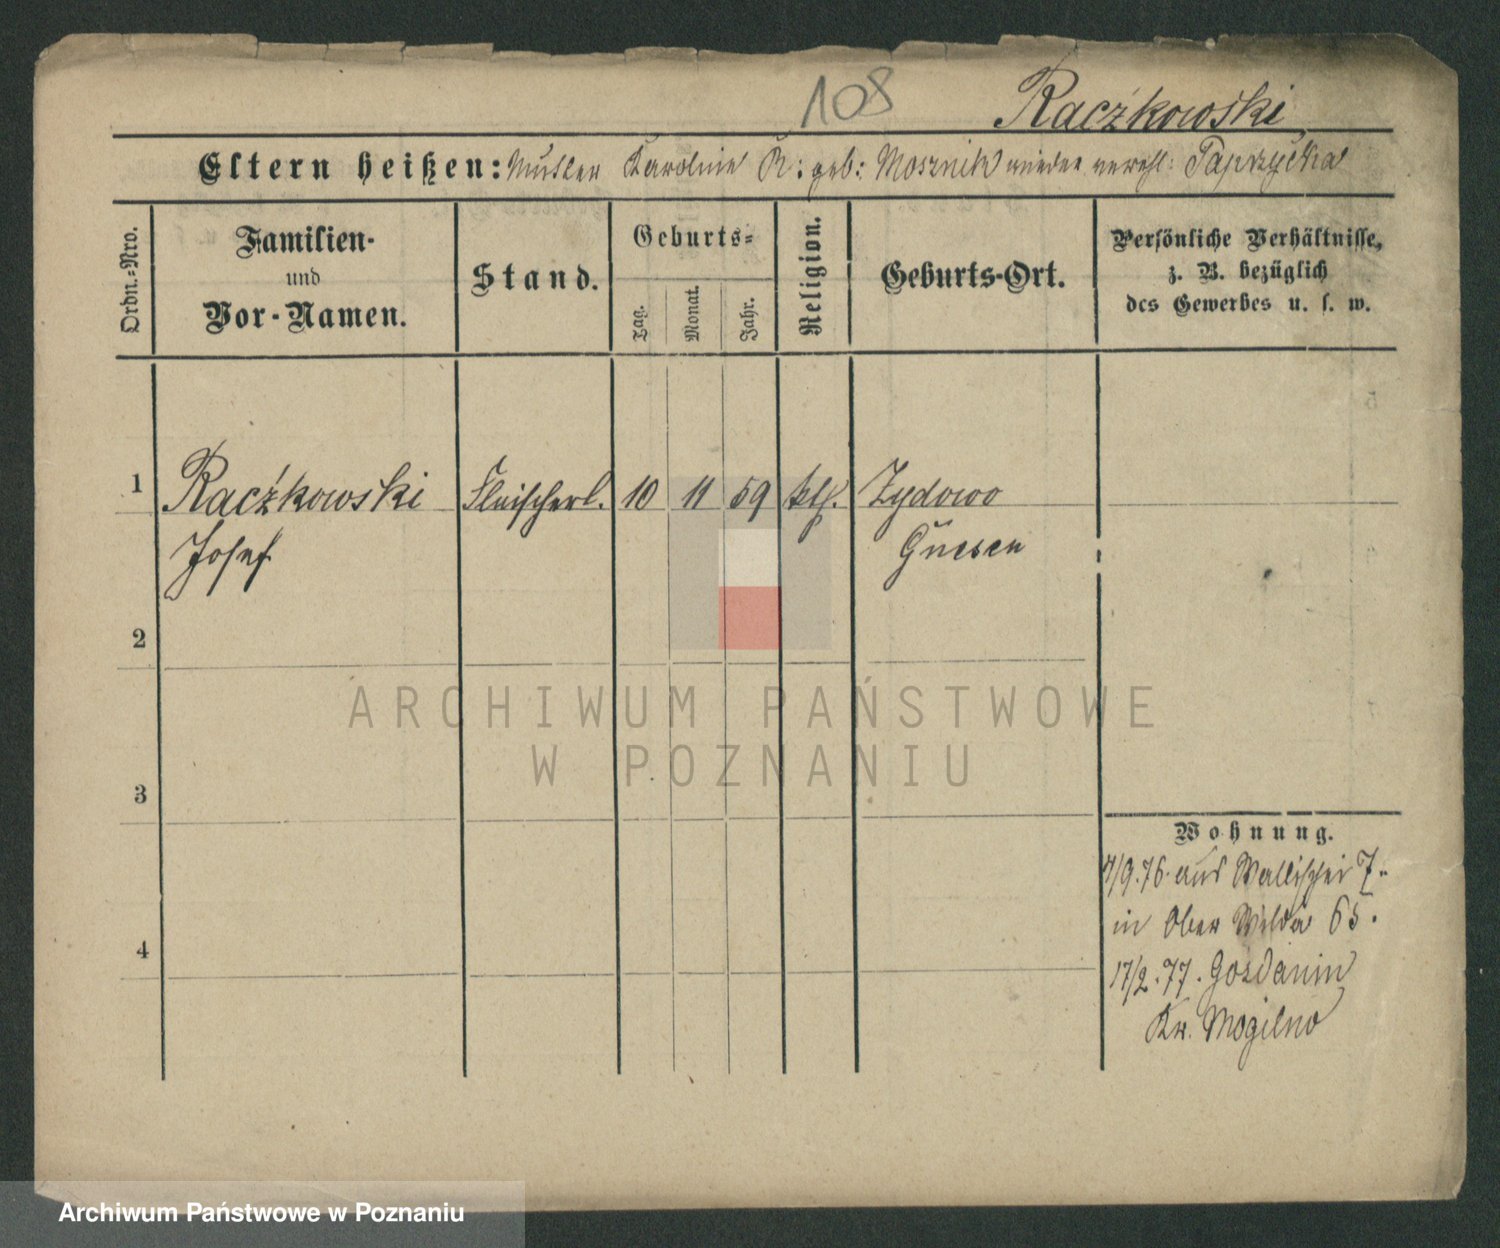 108
Raczkowski
Eltern heißen: Mutter Karoline R: geb: Mosznik wieder verehl: Paprzycka
Ordn.-Nro.
Familien-
und
Vor-Namen.
Stand.
Geburts-
Tag.
Monat.
Jahr.
Religion.
Geburts-Ort.
Persönliche Verhältnisse,
z. B. bezüglich
des Gewerbes u. s. w.
1 Raczkowski Fleischerl. 10 11 59 kth. Zydowo
Josef Gnesen
2
3
4
Wohnung.
7/9.76. aus Wallischei 7.
in Ober Wilda 65.
17/2.77. Gozdanin
Kr. Mogilno
ARCHIWUM PAŃSTWOWE
W POZNANIU
Archiwum Państwowe w Poznaniu